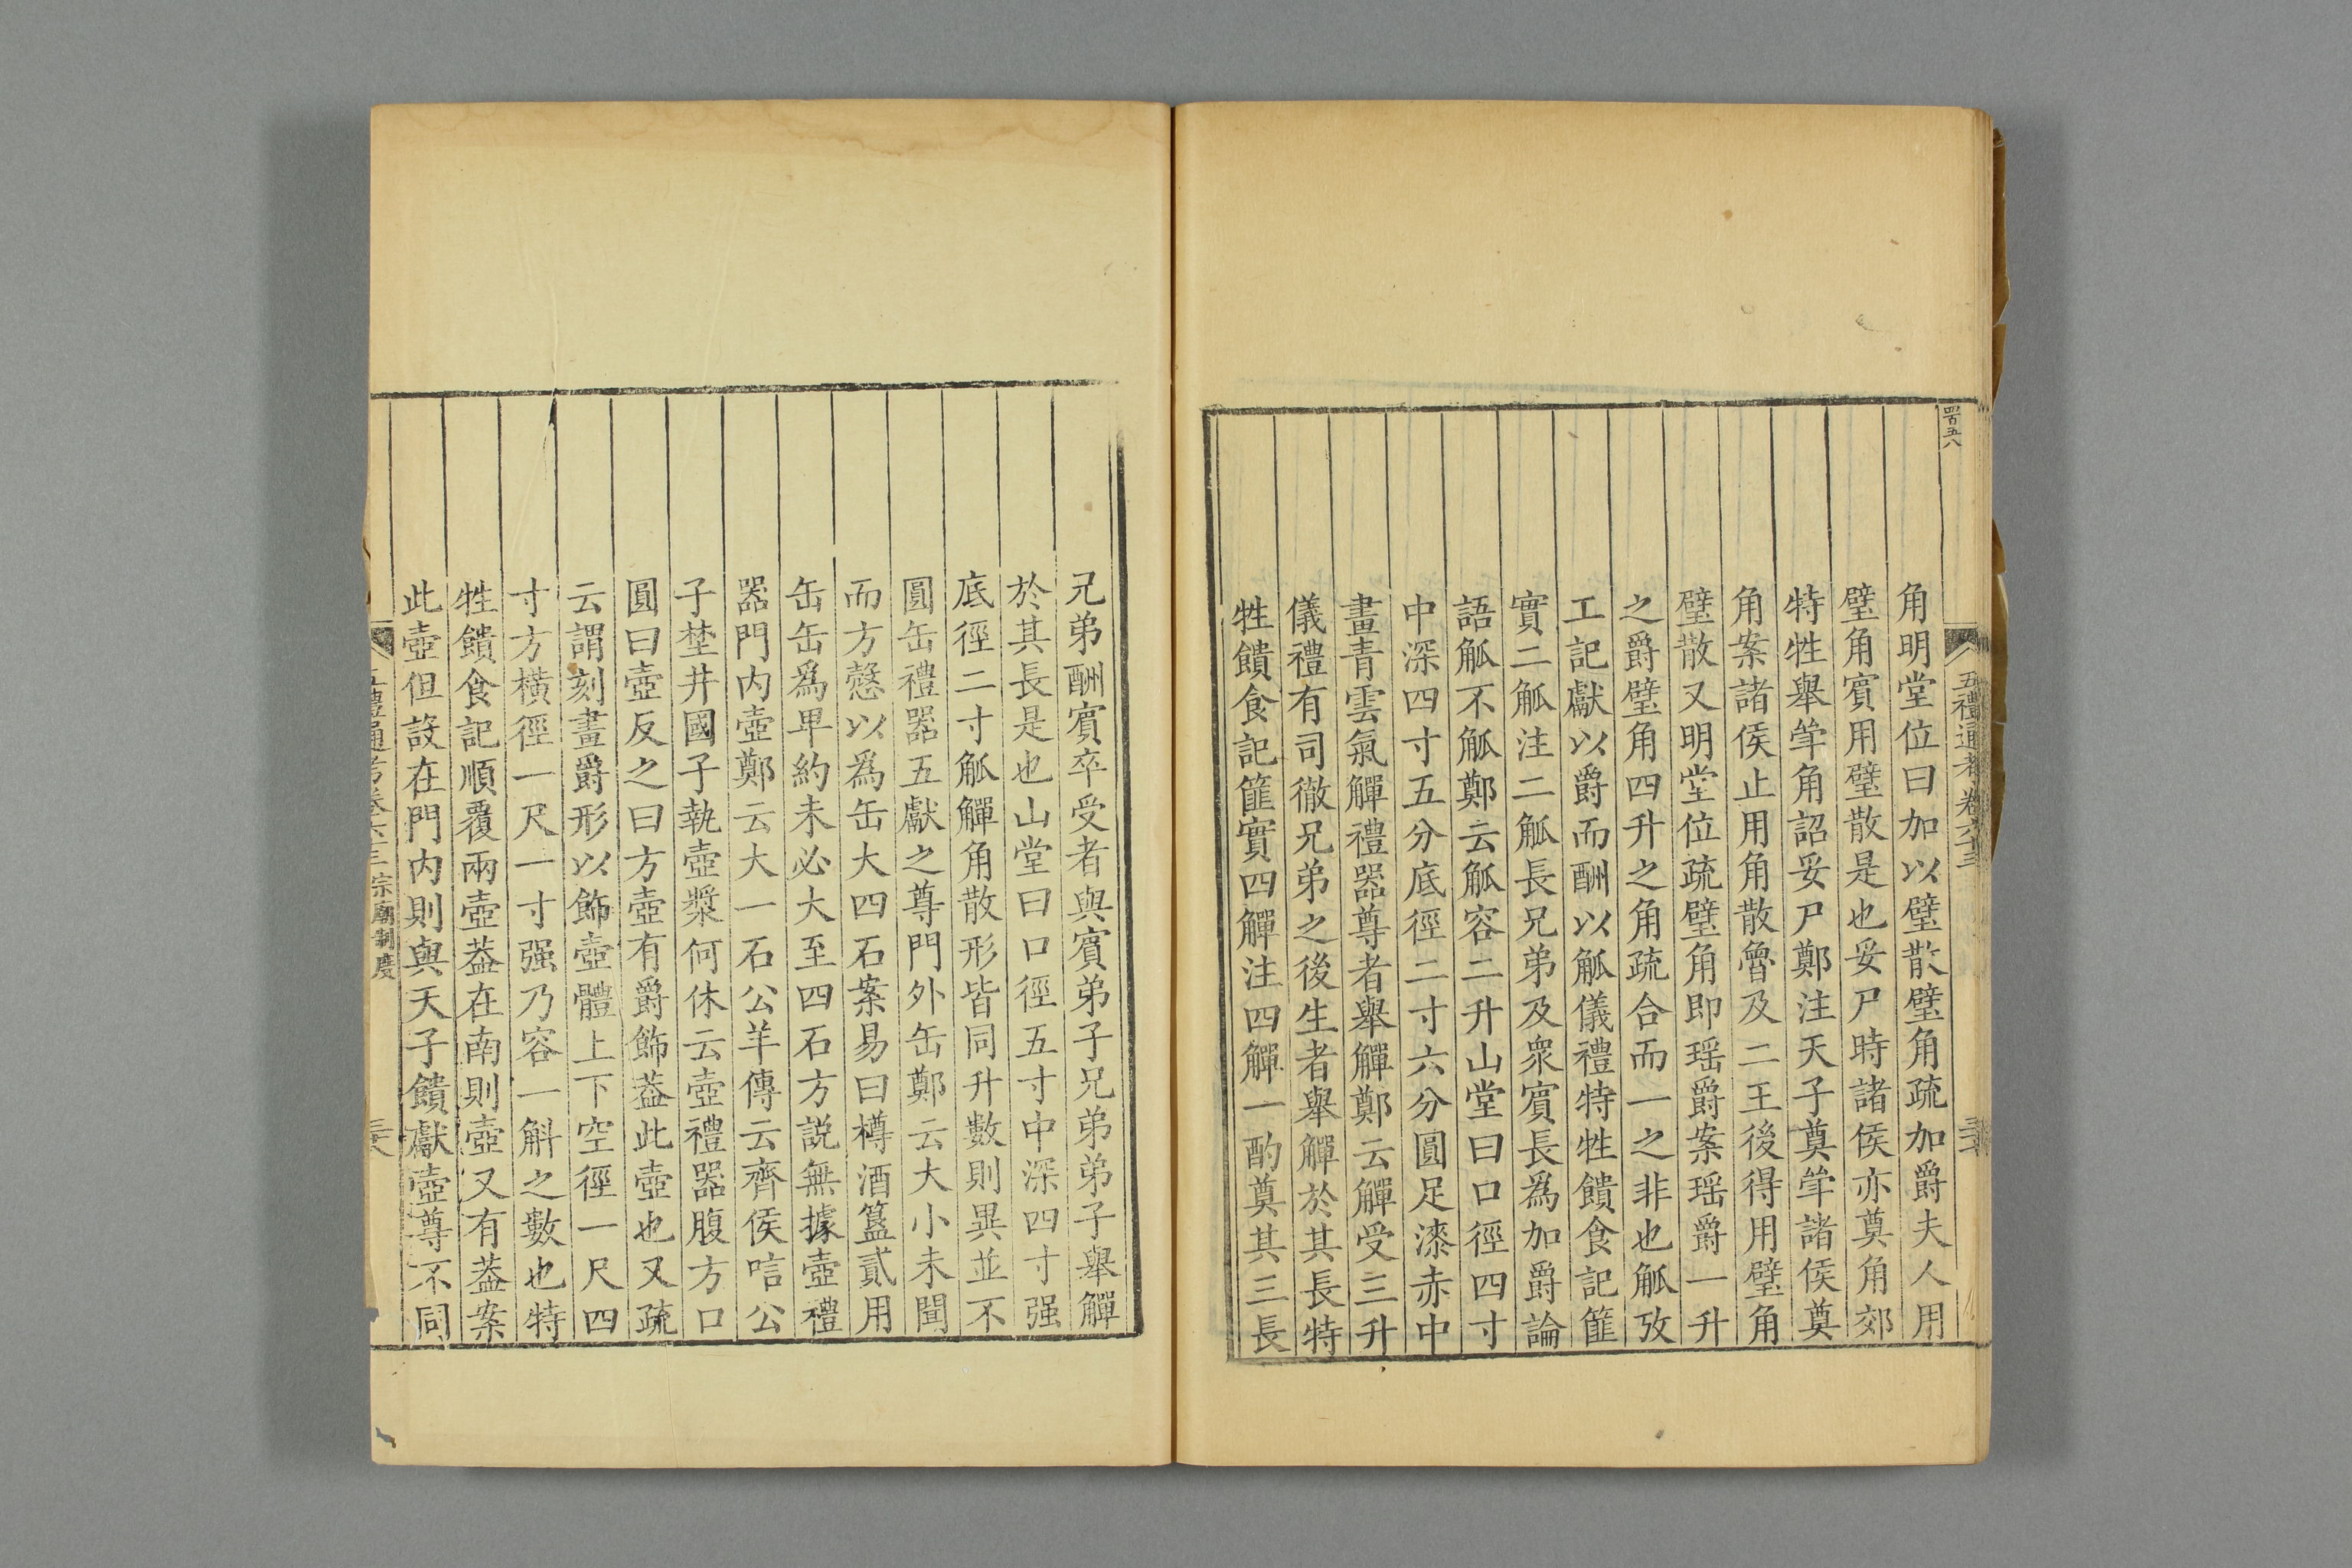 四百五八
五禮通考卷六十三
角明堂位曰加以璧散璧角疏加爵夫人用
璧角賓用璧散是也妥尸時諸侯亦奠角郊
特牲舉斝角詔妥尸鄭注天子奠斝諸侯奠
角案諸侯止用角散魯及二王後得用璧角
璧散又明堂位疏璧角即瑶爵案瑶爵一升
之爵璧角四升之角疏合而一之非也觚攷
工記獻以爵而酬以觚儀禮特牲饋食記篚
實二觚注二觚長兄弟及衆賓長爲加爵論
語觚不觚鄭云觚容二升山堂曰口徑四寸
中深四寸五分底徑二寸六分圓足漆赤中
畫青雲氣觶禮器尊者舉觶鄭云觶受三升
儀禮有司徹兄弟之後生者舉觶於其長特
牲饋食記篚實四觶注四觶一酌奠其三長
兄弟酬賓卒受者與賓弟子兄弟弟子舉觶
於其長是也山堂曰口徑五寸中深四寸强
底徑二寸觚觶角散形皆同升數則異並不
圓缶禮器五獻之尊門外缶鄭云大小未聞
而方慤以爲缶大四石案易曰樽酒簋貳用
缶缶爲卑約未必大至四石方説無據壺禮
器門内壺鄭云大一石公羊傳云齊侯唁公
子埜井國子執壺漿何休云壺禮器腹方口
圓曰壺反之曰方壺有爵飾葢此壺也又疏
云謂刻畫爵形以飾壺體上下空徑一尺四
寸方橫徑一尺一寸强乃容一斛之數也特
牲饋食記順覆兩壺葢在南則壺又有葢案
此壺但設在門内則與天子饋獻壺尊不同
五禮通考卷六十三宗廟制度